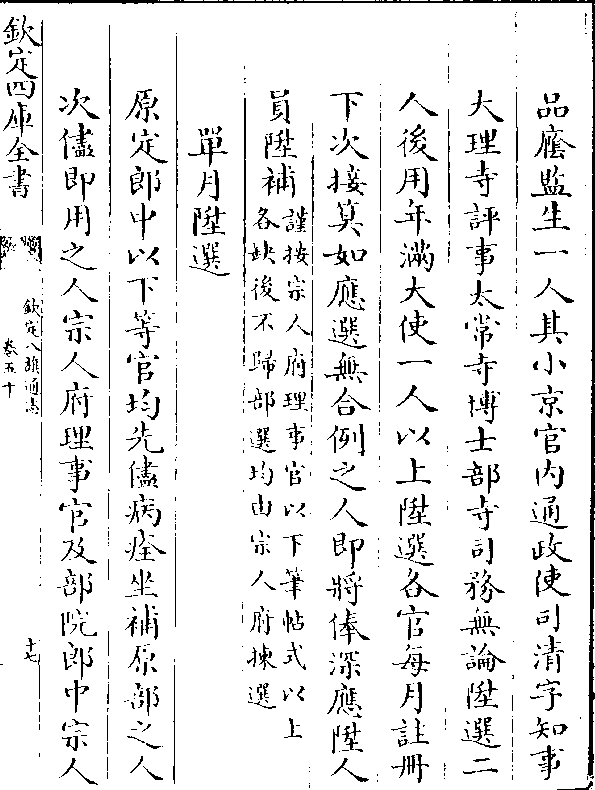 品廕監生一人其小京官内通政使司清字知事
大理寺評事太常寺博士部寺司務無論陞選二
人後用年滿大使一人以上陞選各官每月註冊
下次接算如應選無合例之人即將俸深應陞人
員陞補謹按宗人府理事官以下筆帖式以上
各缺後不歸部選均由宗人府揀選
單月陞選
原定郎中以下等官均先儘病痊坐補原部之人
次儘即用之人宗人府理事官及部院郎中宗人
欽定四庫全書
欽定八旗通志
卷五十
十七